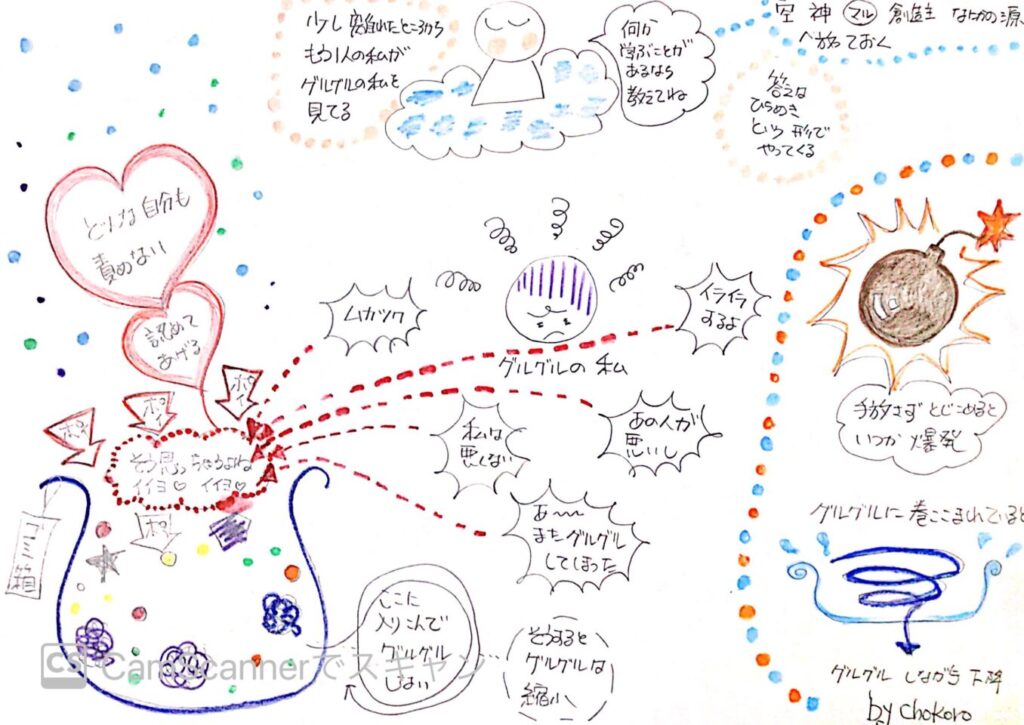 少し離れたところから
もう1人の私が
グルグルの私を
見てる
何か
学ぶことが
あるなら
教えてね
空 神 マル 創造主 なにかの源
へ放っておく
答えは
ひらめき
という形で
やってくる
どんな自分も
責めない
認めて
あげる
ムカツク
イライラ
するよ
グルグルの私
ポイ
ポイ
ポイ
そう思っちゃうよね
イイヨ♡ イイヨ♡
私は
悪くない
あの人が
悪いし
手放さずとじこめると
いつか 爆発
ゴミ箱
ポイ
あ〜〜
またグルグル
してしまった
グルグルに巻きこまれていると
ここに
入りこんで
グルグル
しない
そうすると
グルグルは
縮小
グルグル しながら 下降
by chokoro
CS CamScannerでスキャン